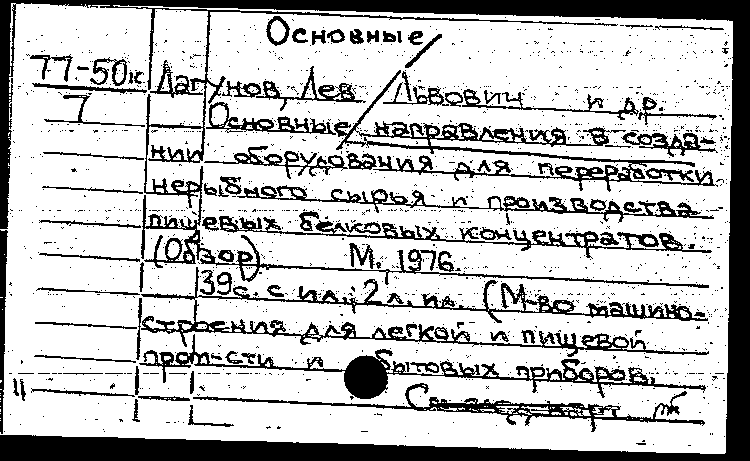 Основные
77-50к Лагунов, Лев Львович и др.
7 Основные направления в созда-
нии оборудования для переработки
нерыбного сырья и производства
пищевых белковых концентратов.
(Обзор). М., 1976.
39с. с ил.; 2 л. ил. (М-во машино-
строения для легкой и пищевой
пром-сти и бытовых приборов.
См. след. карт.
11